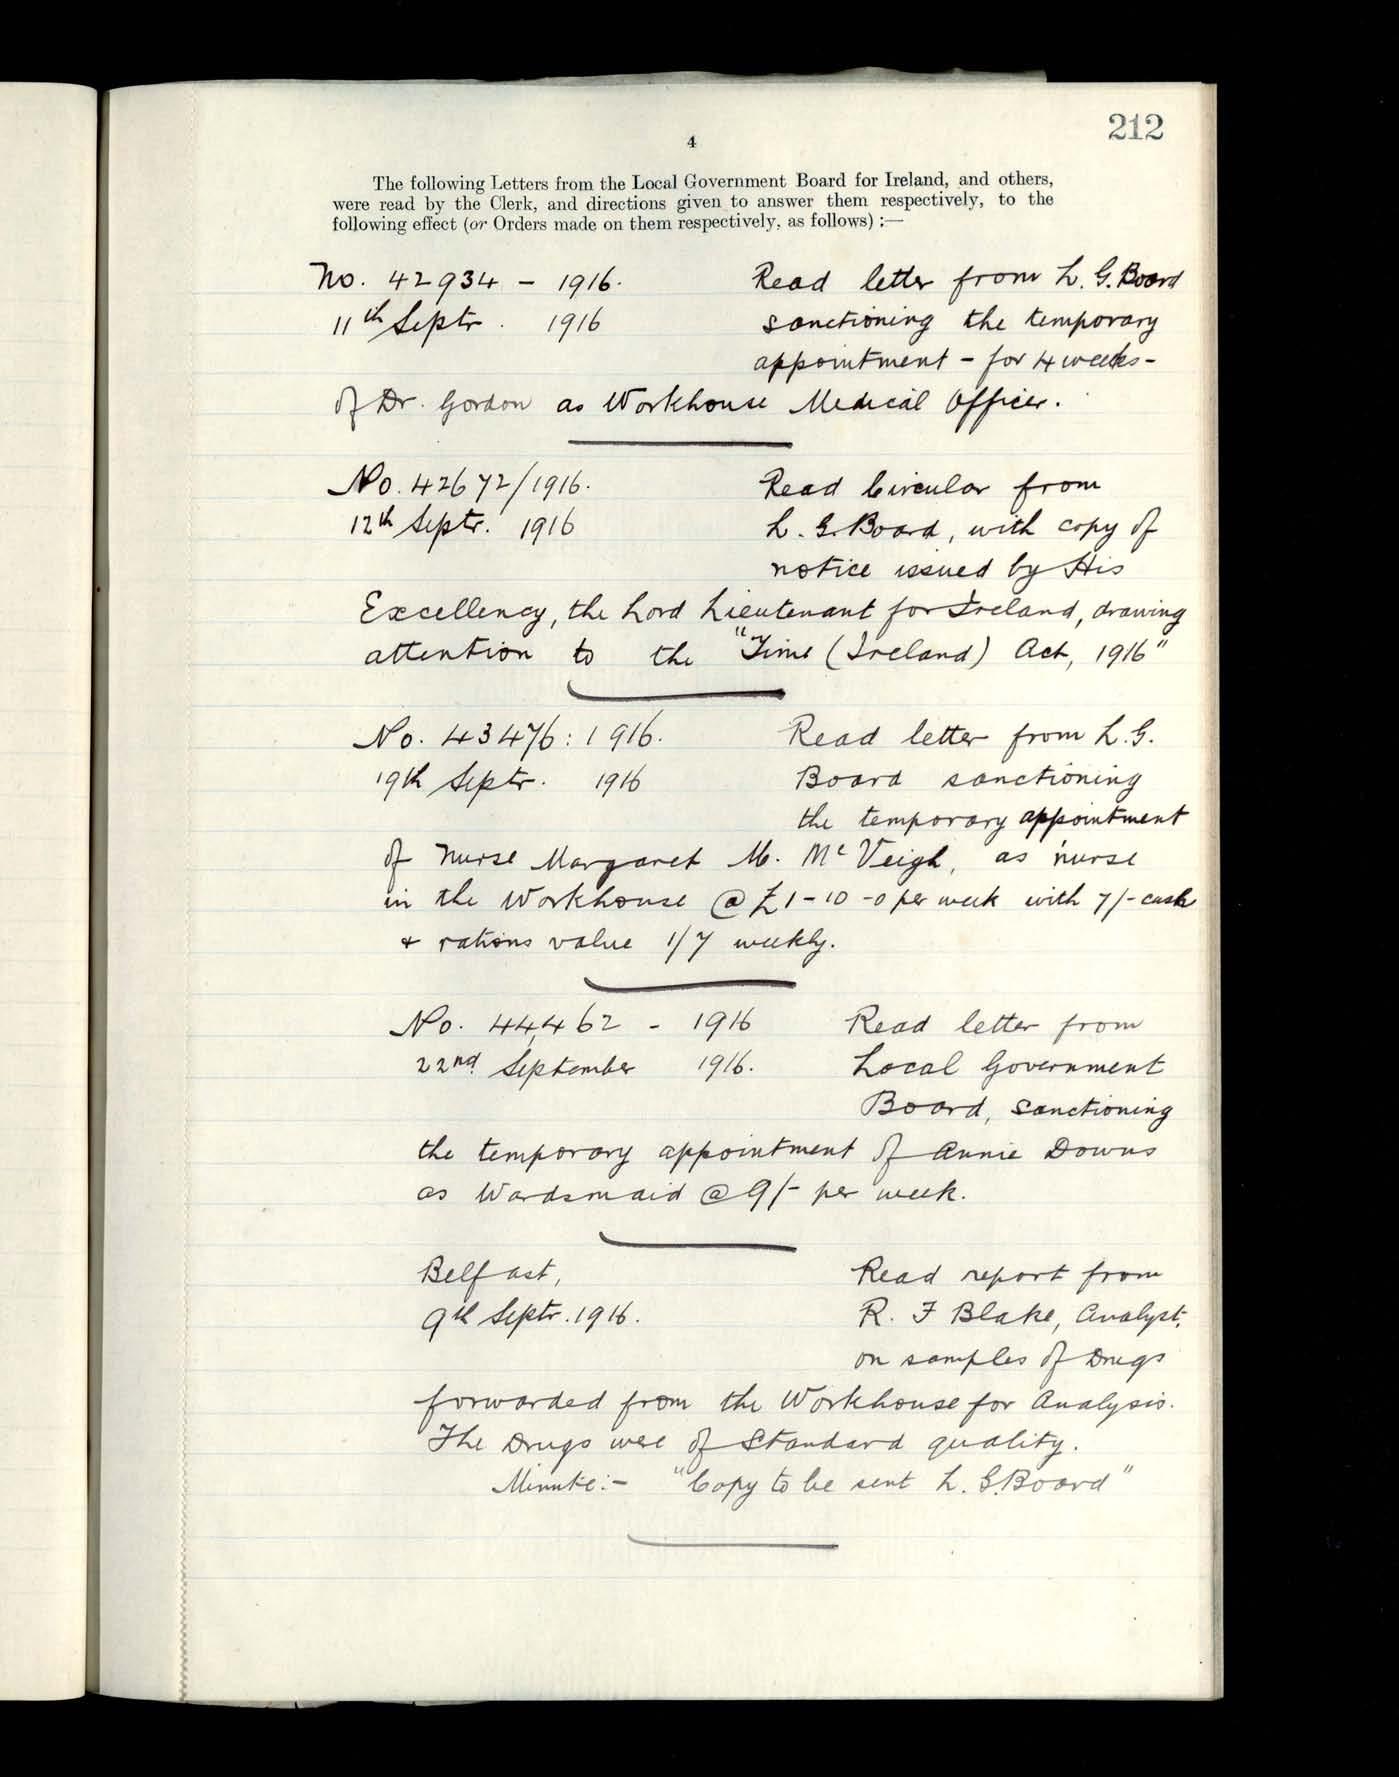 212
4
The following Letters from the Local Government Board for Ireland, and others,
were read by the Clerk, and directions given to answer them respectively, to the
following effect (or Orders made on them respectively, as follows) :—
No. 42934 - 1916. Read letter from L. G. Board
11th Septr. 1916 sanctioning the temporary
appointment - for 4 weeks -
of Dr. Gordon as Workhouse Medical Officer.
No. 42672/1916. Read Circular from
12th Septr. 1916 L. G. Board, with copy of
notice issued by His
Excellency, the Lord Lieutenant for Ireland, drawing
attention to the "Time (Ireland) Act, 1916"
No. 43476: 1916. Read letter from L. G.
19th Septr. 1916 Board sanctioning
the temporary appointment
of Nurse Margaret M. McVeigh, as nurse
in the Workhouse @ £1-10-0 per week with 7/- cash
& rations value 1/7 weekly.
No. 44,462 - 1916 Read letter from
22nd September 1916. Local Government
Board, sanctioning
the temporary appointment of Annie Downs
as Wardsmaid @ 9/- per week.
Belfast, Read report from
9th Septr. 1916. R. F Blake, Analyst,
on samples of Drugs
forwarded from the Workhouse for Analysis.
The Drugs were of Standard quality.
Minute:- "Copy to be sent L. G. Board"